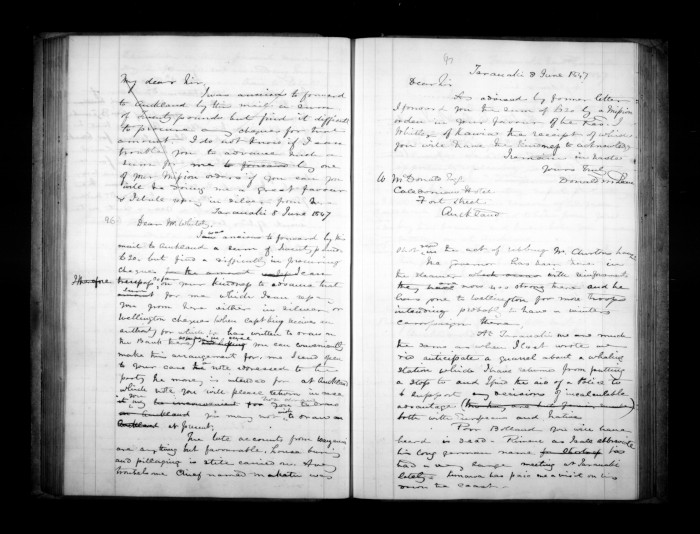 My dear Sir,
I was anxious to forward
to Auckland by this mail a sum
of twenty pounds but find it difficult
to procure any cheques for that
amount. I do not know if I can
trouble you to advance such a
sum for me to forward by one
of your Mission orders if you can you
will be doing me a great favour
in silver from me
Taranaki 8 June 1847
Dear Mr. Whiteley,
I am anxious to forward by this
mail to Auckland a sum of twenty pounds
£20. but find a difficulty in procuring
cheques for the amount I can
therefore trespass on your kindness to advance that
sum for me which I can
you from here either in silver or
Wellington cheques when Captn King receives an
authority for which he has written to draw on
the Bank there you can conveniently
make this arrangement for me I send you
to your care the note addressed to the
party the money is intended for at Auckland
which note you will please return in case
it may
on Auckland you may not to draw on
Auckland at present.
The late accounts from Wanganui
are anything but favourable, house burning
and pillaging is still carried on. A
troublesome Chief named was
93
Taranaki 8 June 1847
Dear Sir
As advised by former letter
I forward you the sum of £20 by a Mission
order in your favour of the Revd. I
Whiteley of Kawia the receipt of which
you will have the kindness to acknowledge
I remain in haste
Yours truly
Donald McLean
To McDonald Esq.
Caledonian Hotel
Fort Street
Auckland
shot in the act of robbing Mr. Churtons house
The Governor has been here in
the steamer with reinforcements
they now strong there and he
has gone to Wellington for more troops
intending probably to have a winters
campaign there.
At Taranaki we are much
the same as when I last wrote
anticipate a quarrel about a whaling
station which I have returned from putting
a stop to and I find the aid of a Police
to support my decisions of incalculable
advantage
both with Europeans and Natives
Poor Bolland you will have
heard is dead.
his long german name has
had a very large meeting at Taranaki
lately. has paid me a visit on his
down the coast.